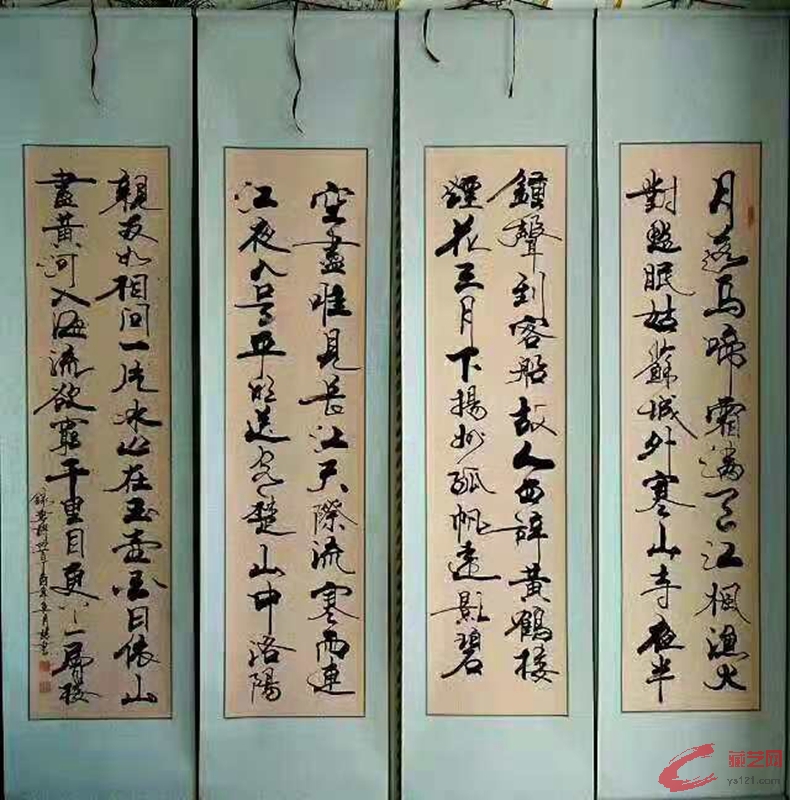 月落烏啼霜滿天江楓漁火
對愁眠姑蘇城外寒山寺夜半
鍾聲到客船故人西辞黄鶴楼
煙花三月下揚州孤帆遠影碧
空盡唯見長江天際流寒雨連
江夜入吴平明送客楚山中洛陽
親友如相問一片冰心在玉壺白日依山
盡黄河入海流欲窮千里目更上一層楼
藏艺网
ys121.com